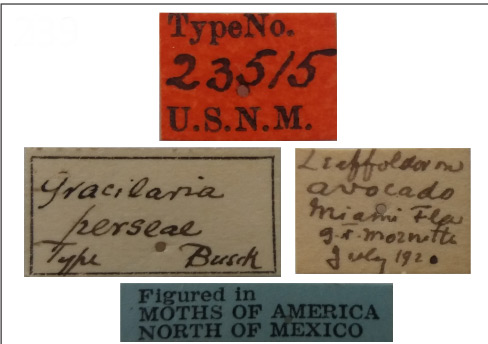 TypeNo.
23515
U.S.N.M.
Gracilaria
perseae
Type Busck
Leaffolder on
avocado
Miami Fla
July 192
Figured in
MOTHS OF AMERICA
NORTH OF MEXICO